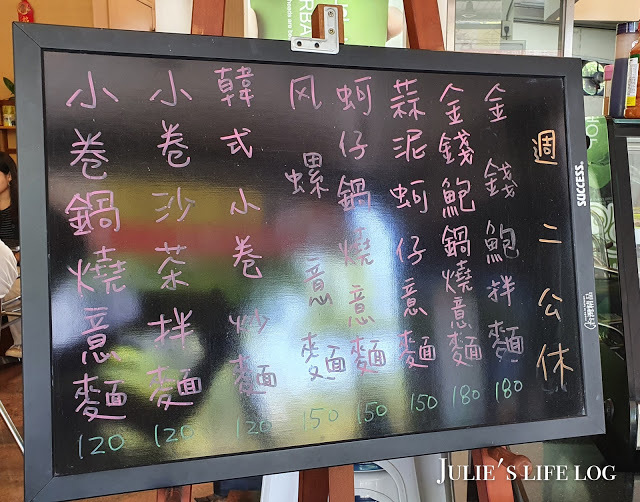 週二公休
金錢鮑拌麵 180
金錢鮑鍋燒意麵 180
蒜泥蚵仔意麵 150
蚵仔鍋燒意麵 150
风螺意麵 150
韓式小卷炒麵 120
小卷沙茶拌麵 120
小卷鍋燒意麵 120
SUCCESS
JULIE'S LIFE LOG